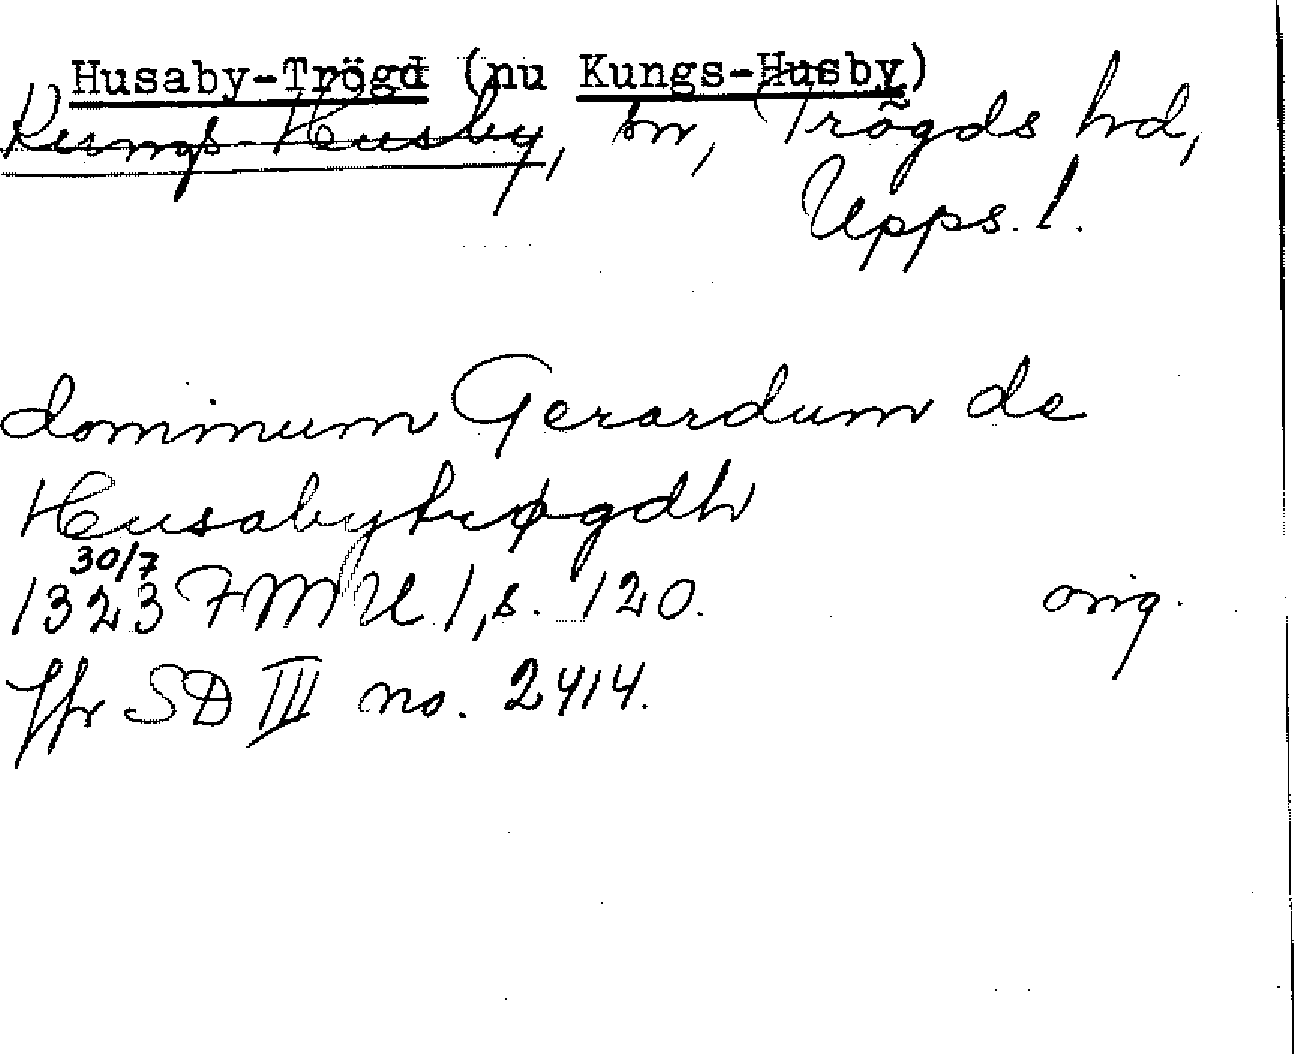 Husaby-Trögd (nu Kungs-Husby)
Kungs-Husby, sn, Trögds hd,
Upps. l.
dominum Gerardum de
Husabytrøgdh
30/7
1323 FMU 1, s. 120. orig.
Jfr SD III no. 2414.